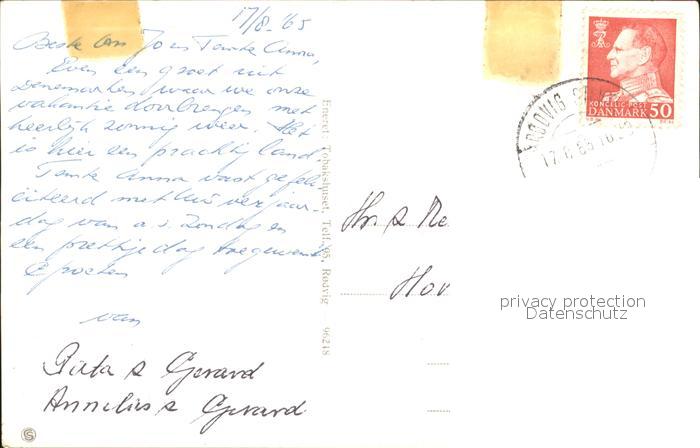 17/8-'65
Beste Om Jo en Tante Anna,
Even een groet uit
Denemarken waar we onze
vakantie doorbrengen met
heerlijk zonnig weer. Het
is hier een prachtig land
Tante Anna vast gefeli-
citeerd met Uw verjaar-
dag van a.s. Zondag en
een prettige dag toegewenst.
Groeten
van
Gerard
Annelies & Gerard
Eneret: Tobakshuset, Telf. 95, Rødvig 96248
KONGELIG POST
DANMARK 50
RØDVIG
17.8.65
Hr. &
privacy protection
Datenschutz